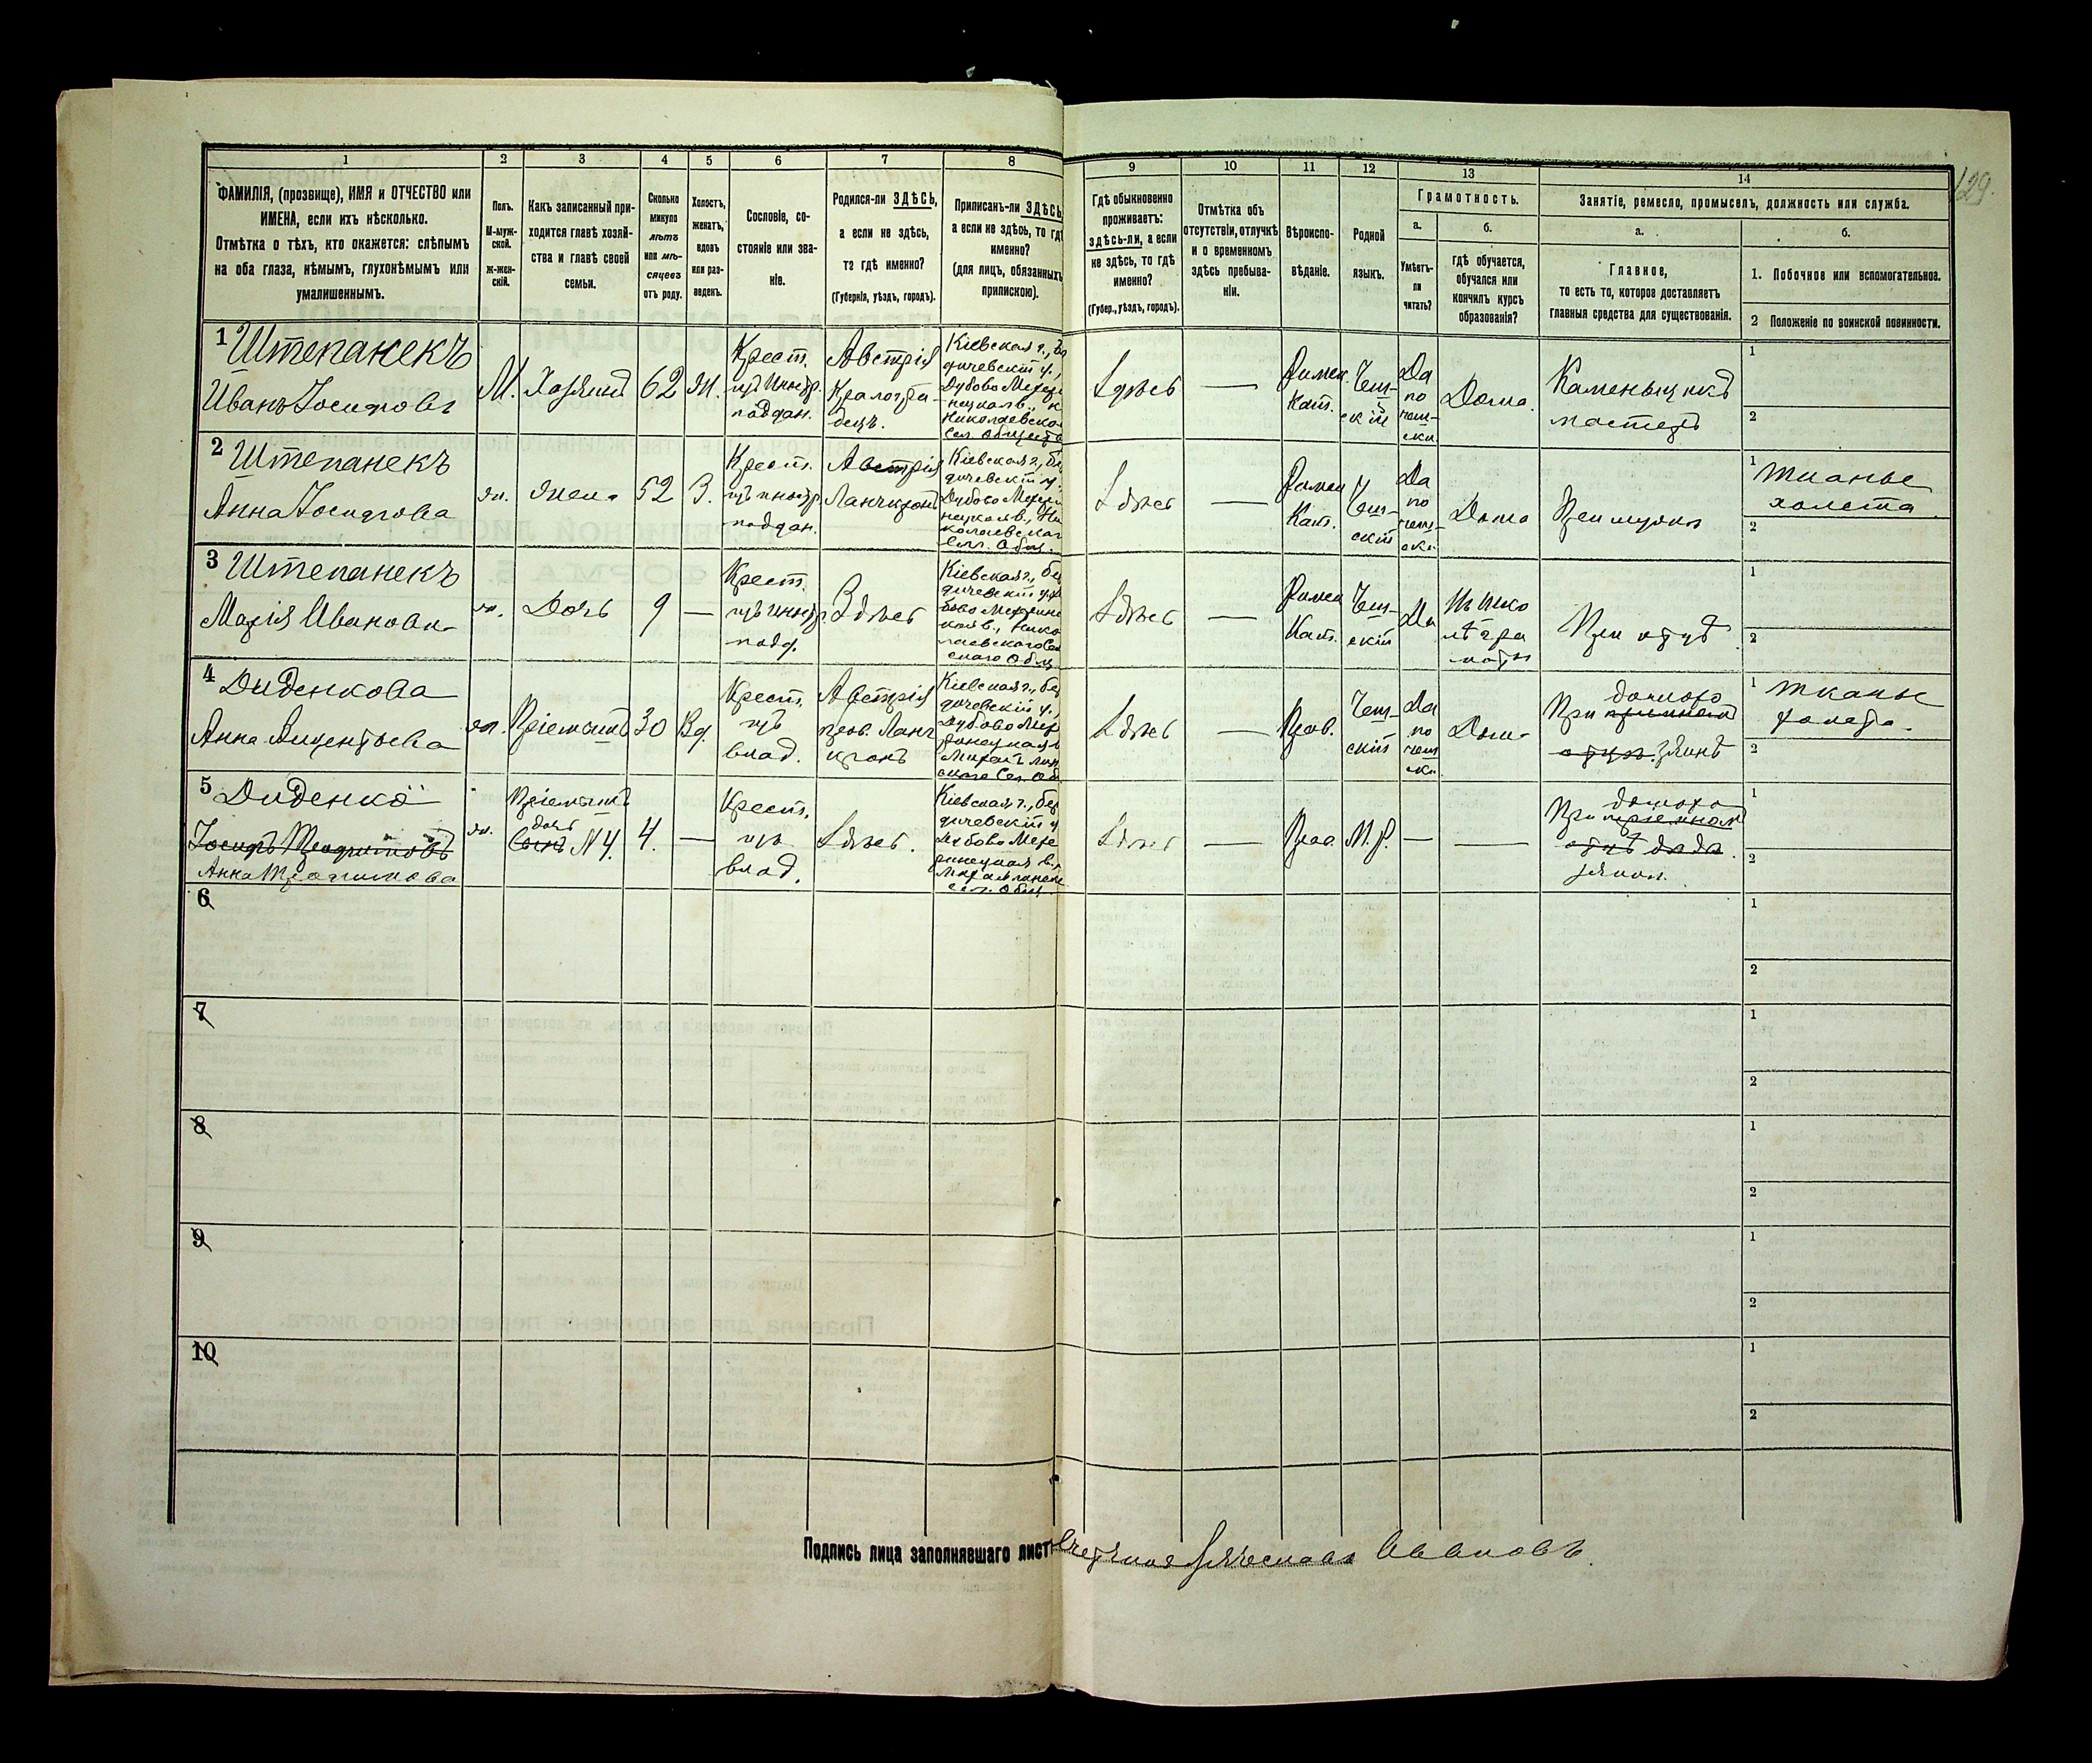 129.
1
2
3
4
5
6
7
8
9
10
11
12
13
14
ФАМИЛІЯ, (прозвище), ИМЯ и ОТЧЕСТВО или
ИМЕНА, если ихъ нѣсколько.
Отмѣтка о тѣхъ, кто окажется: слѣпымъ
на оба глаза, нѣмымъ, глухонѣмымъ или
умалишеннымъ.
Полъ.
М-муж-
ской.
ж-жен-
скій.
Какъ записанный при-
ходится главѣ хозяй-
ства и главѣ своей
семьи.
Сколько
минуло
лѣтъ
или мѣ-
сяцевъ
отъ роду.
Холостъ,
женатъ,
вдовъ
или раз-
веденъ.
Сословіе, со-
стояніе или зва-
ніе.
Родился-ли ЗДѢСЬ,
а если не здѣсь,
то гдѣ именно?
(Губернія, уѣздъ, городъ).
Приписанъ-ли ЗДѢСЬ,
а если не здѣсь, то гдѣ
именно?
(для лицъ, обязанныхъ
припискою).
Гдѣ обыкновенно
проживаетъ:
здѣсь-ли, а если
не здѣсь, то гдѣ
именно?
(Губер., уѣздъ, городъ).
Отмѣтка объ
отсутствіи, отлучкѣ
и о временномъ
здѣсь пребыва-
ніи.
Вѣроиспо-
вѣданіе.
Родной
языкъ.
Грамотность.
а.
Умѣетъ-
ли
читать?
б.
гдѣ обучается,
обучался или
кончилъ курсъ
образованія?
Занятіе, ремесло, промыселъ, должность или служба.
а.
Главное,
то есть то, которое доставляетъ
главныя средства для существованія.
б.
1. Побочное или вспомогательное.
2 Положеніе по воинской повинности.
1 Штепанекъ
Иванъ Іосифовъ
М.
Хозяинъ
62
Ж.
Крест.
изъ Иностр.
поддан.
Австрія
Кіевская г., Бе
дичевскій у.,
Сел. Обществ
Здѣсь
—
Римск.
Кат.
Чеш-
скій
Да
по
чеш-
ски
Дома.
Каменьщикъ
мастеръ
1
2
2 Штепанекъ
Анна Іосифова
ж.
Жена
52
З.
Крест.
изъ иностр.
поддан.
Австрія
Кіевская г., бер
дичевскій у.
Здѣсь
—
Римск
Кат.
Чеш-
скій
Да
по
чеш-
ски
Дома
При мужѣ
1 Тканье
холста
2
3 Штепанекъ
Марія Иванова
ж.
Дочь
9
—
Крест.
изъ иностр.
подд.
Здѣсь
Кіевская г., бер
Здѣсь
—
Римск
Кат.
Чеш-
скій
Да
При отцѣ
1
2
4 Диденкова
Анна
ж.
Пріемышъ
30
Вд.
Крест.
изъ
влад.
Австрія
Кіевская г., бер
дичевскій у.,
Здѣсь
—
Прав.
Чеш-
скій
Да
по
чеш
ски
Дома
При
1 тканье
холста.
2
5 Диденко
Іосифъ Трофимовъ
Анна Трофимова
ж.
Пріемышъ
дочь
Сынъ №4.
4.
—
Крест.
изъ
влад.
Здѣсь.
Кіевская г., бер
дичевскій у
Здѣсь
—
Прав.
М. Р.
—
—
При
1
2
6
1
2
7
1
2
8
1
2
9
1
2
10
1
2
Подпись лица заполнявшаго листъ
Ивановъ.